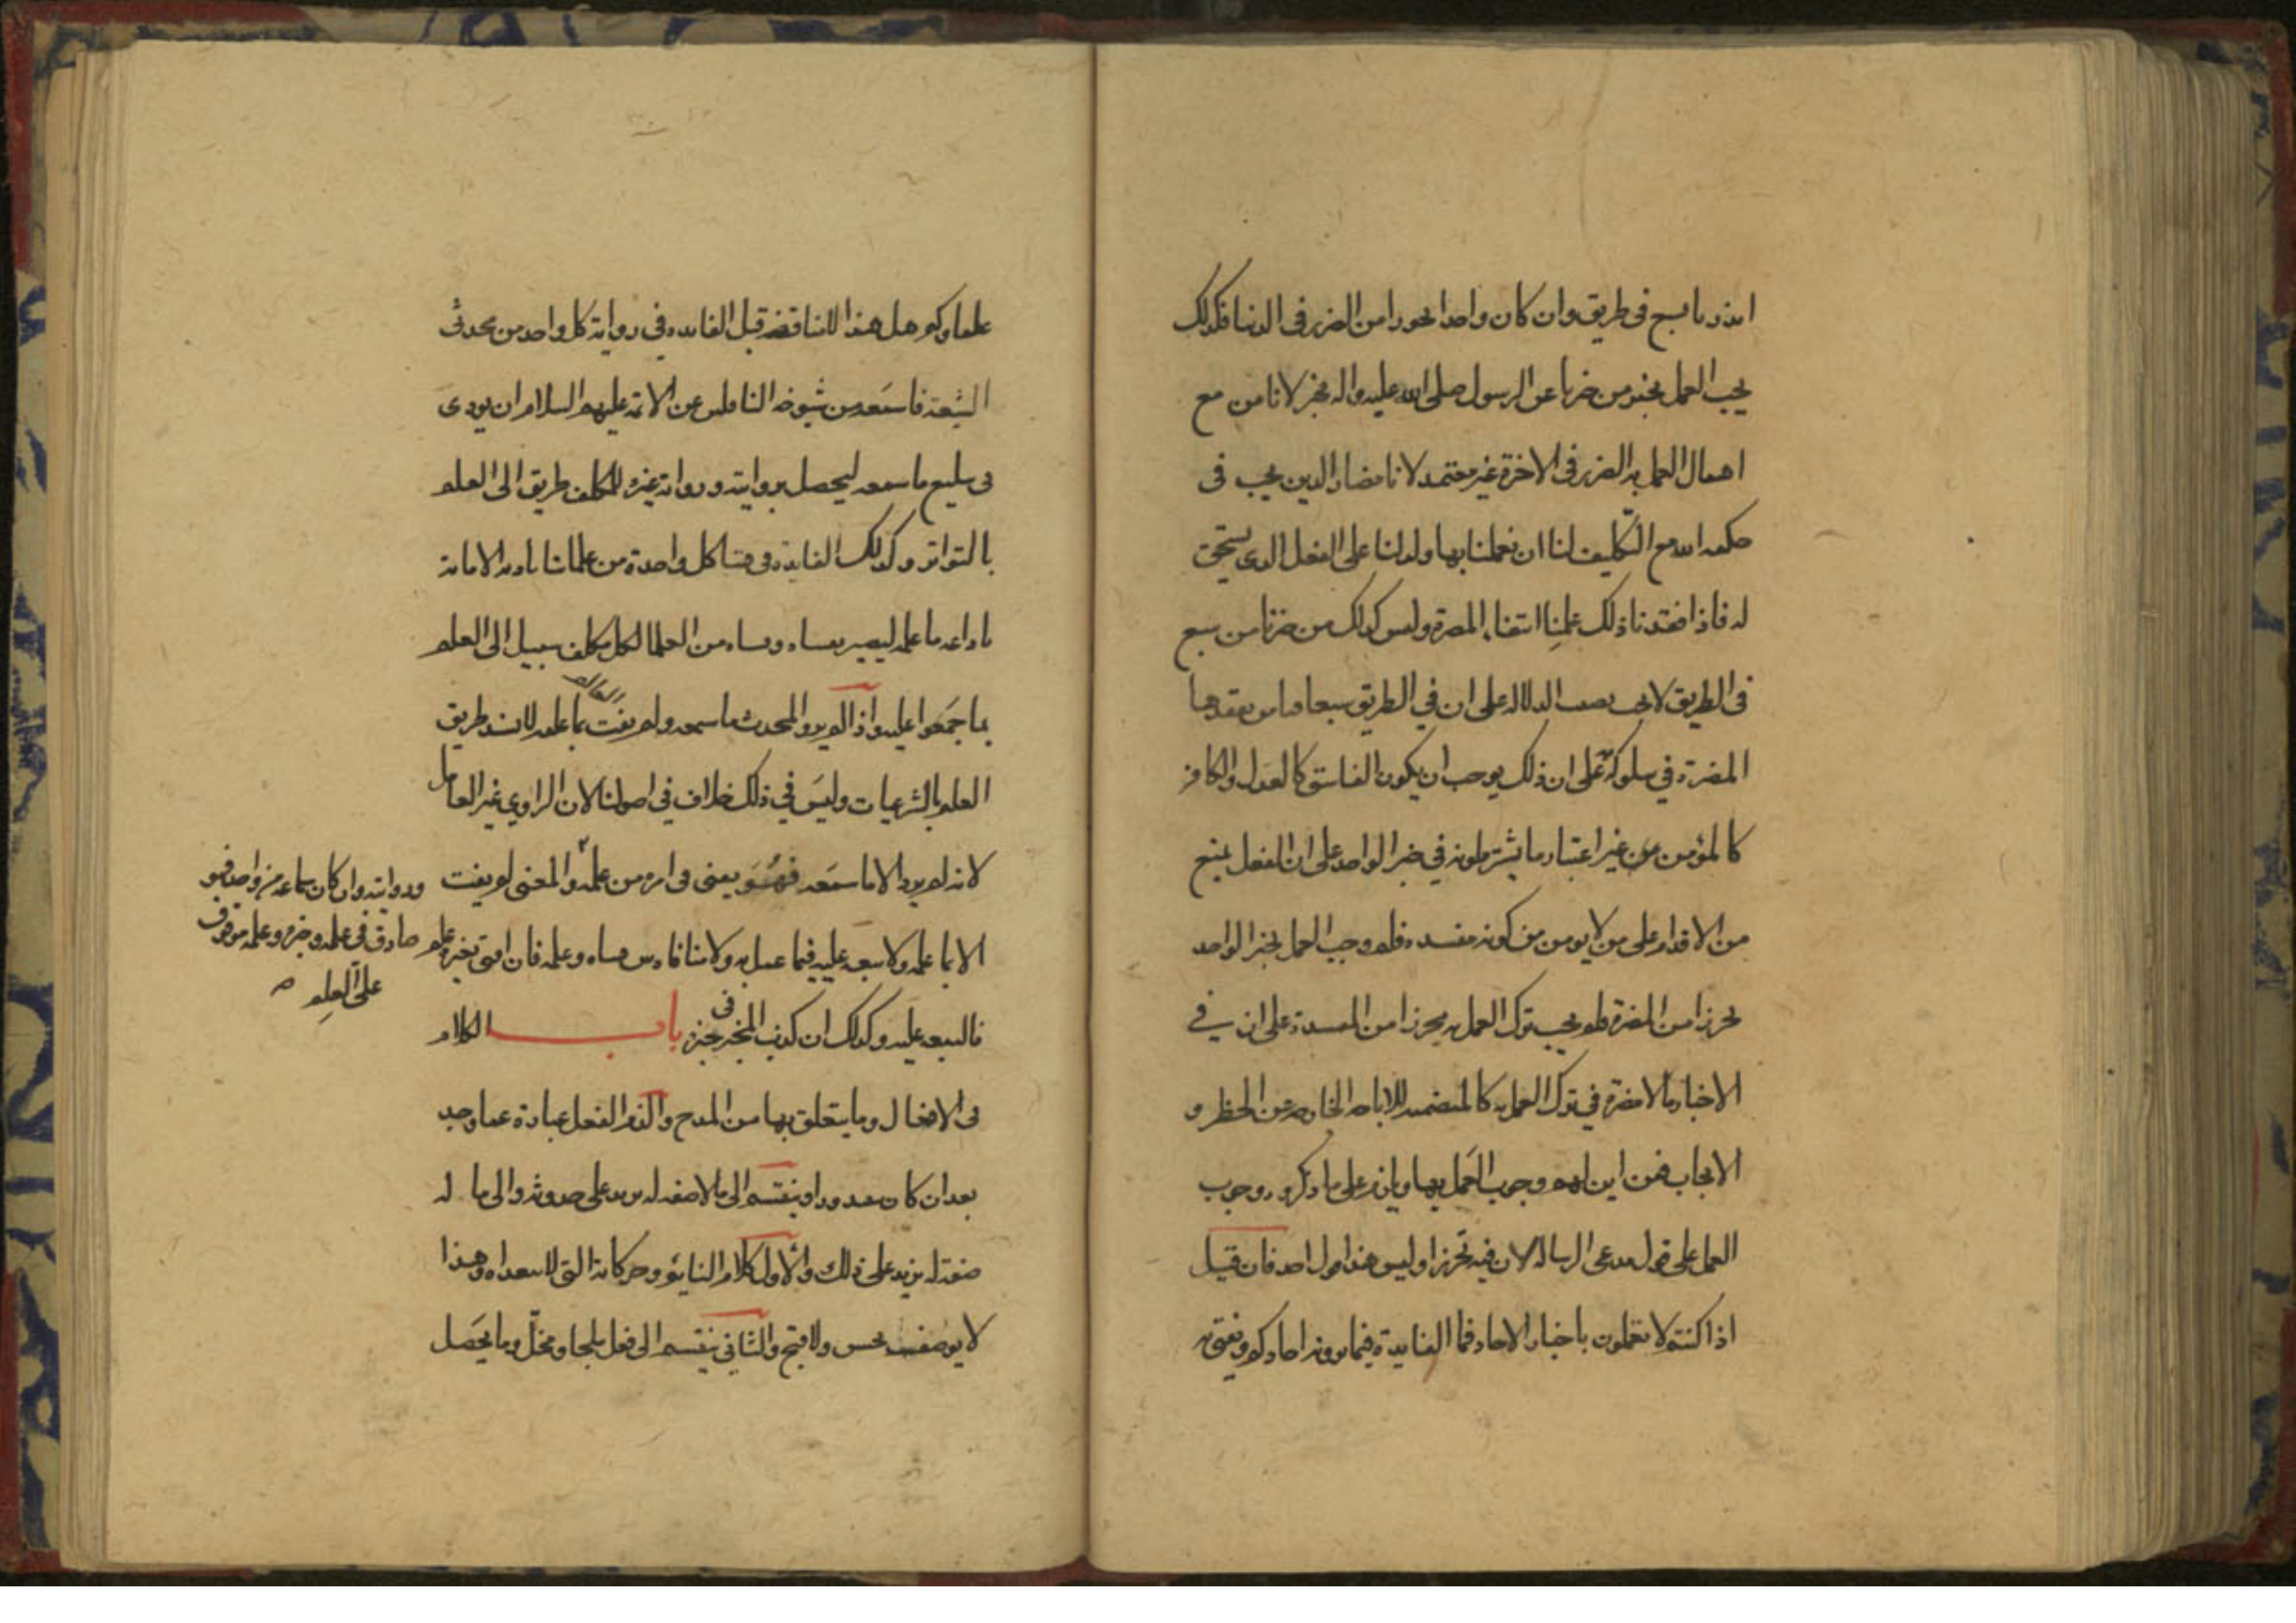 انذرنا بسبع في طريق وان كان واحدا تحورا من الضرر في الدنيا فكذلك
يجب العمل بخبر من خبرنا عن الرسول صلى الله عليه واله بخبر لانا من مع
اهمال العمل به الضرر في الاخرة غير معتمد لانا مضار الدين يجب في
حكمه الله مع التكليف لنا ان يعلمنا بها ويدلنا على الفعل الذي يستحق
له فاذا فقدنا ذلك علمنا انتفاء المضرة وليس كذلك من خبرنا من سبع
في الطريق لا يجب نصب الدلالة على ان في الطريق سبعا
المضرة في سلوكه على ان ذلك يوجب ان يكون الفاسق كالعدل والكافر
كالمؤمن من غير اعتبار ما يشترطونه في خبر الواحد على ان الفعل يمنع
من الاقدام على من لا يومن من كونه مفسده فلو وجب العمل بخبر الواحد
تحرزا من المضرة فلم يجب ترك العمل به تحرزا من المفسدة على ان في
الاخبار ما لا مضرة في ترك العمل به كالمتضمنه للاباحه الخارجه عن الحظر و
الايجاب فمن اين لهم وجوب العمل بها ويلزم على ما ذكروه وجوب
العمل على قول مدعى الرساله لان فيه تحرزا وليس هذا قول احد فان قيل
اذا كنتم لا تعملون باخبار الاحاد فما الفايدة فيما يرويه احادكم ويفتى به
علماوكم وهل هذا الا مناقضه قيل الفايده في رواية كل واحد من محدثى
الشيعة ما سمعه من شيوخه الناقلين عن الائمه عليهم السلام ان يودى
في تبليغ ما سمعه ليحصل بروايته ورواية غيره للمكلف طريق الى العلم
بالتواتر وكذلك الفايدة في فتيا كل واحدة من علمائنا تاديه الامانة
باداعه ما علمه ليصير بفتياه وفتيا من العلما لكل مكلف سبيل الى العلم
بما اجمعوا عليه واذا لم يرو المحدث ما سمعه ولم يفت العالم بما علمه لانسد طريق
العلم بالشرعيات وليس في ذلك خلاف في اصولنا لان الراوي غير العامل
لانه لم يرو الا ما سمعه فهو يعنى في امر من علمه والمعنى لم يفت
وروايته وان كان سماعه من واحد فهو
صادق في علمه وخبره وعلمه موقوف
على العلم صح
الا بما علمه ولا تبعه عليه فيما عمل به ولا تنافى بين فتياه وعلمه فان افتى بغير علم
فالتبعه عليه وكذلك ان كذب المخبر في خبره باب الكلام
في الافعال وما يتعلق بها من المدح والذم الفعل عبارة عما وجد
بعد ان كان مقدورا وينقسم الى ما لا صفه له يزيد على حدوثه والى ما له
صفة له يزيد على ذلك والاول كلام النايم وحركاته التى لا تتعداه وهذا
لا يوصف بحسن ولا قبح والثاني ينقسم الى فعل ملجا ومخلى وما يحصل